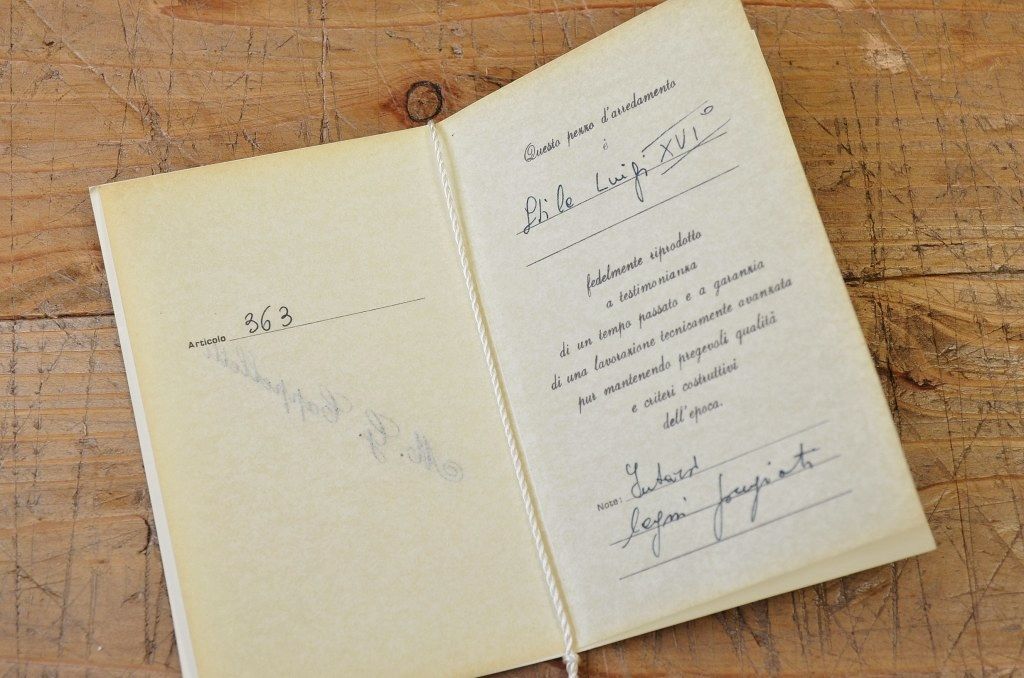 Articolo 363
Questo pezzo d'arredamento
è
Stile Luigi XVI°
fedelmente riprodotto
a testimonianza
di un tempo passato e a garanzia
di una lavorazione tecnicamente avanzata
pur mantenendo pregevoli qualità
e criteri costruttivi
dell'epoca.
Note: Intarsi
legni pregiati